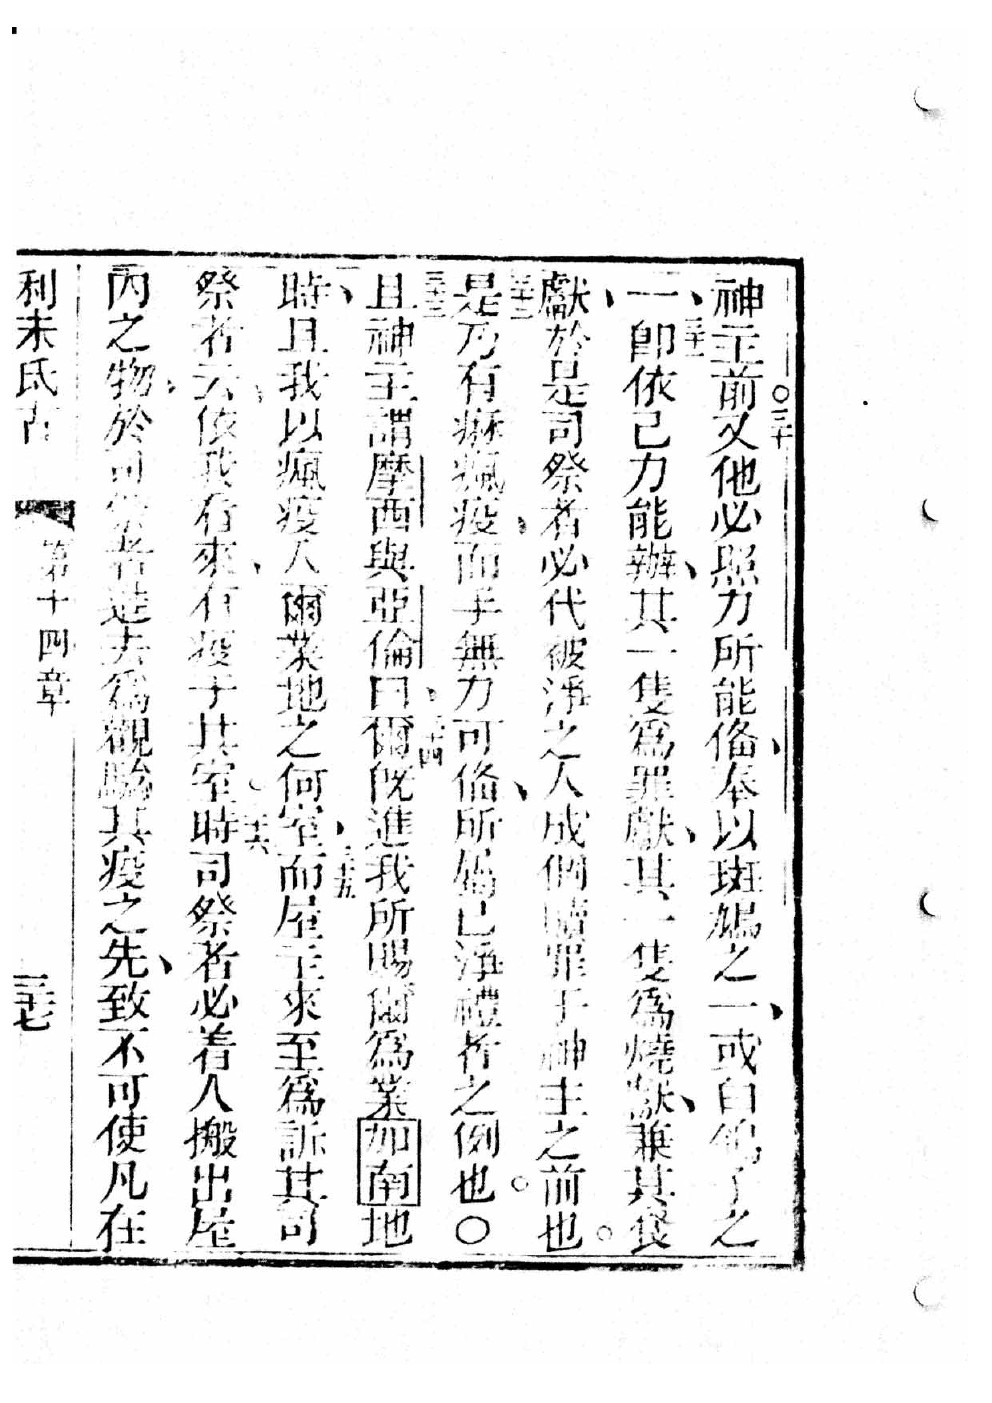 神主前○三十又他必照力所能備、奉以斑鳩之一、或白鴿子之
一、三十一即依己力能辦、其一隻爲罪獻、其一隻爲燒獻、兼其餐
獻、於是司祭者必代被淨之人成個贖罪于神主之前也。
三十二是乃有癩瘋疫、而手無力可備、所為已淨禮者之例也。○
三十三且神主謂摩西與亞倫曰、三十四爾既進我所賜爾爲業加南地
時、且我以瘋疫入爾業地之何室、三十五而屋主來至爲訴其司
祭者云、依我看來、有疫于其室時。三十六司祭者必着人搬出屋
內之物、於司祭者進去爲觀驗其疫之先、致不可使凡在
利未氏古 第十四章 三十七